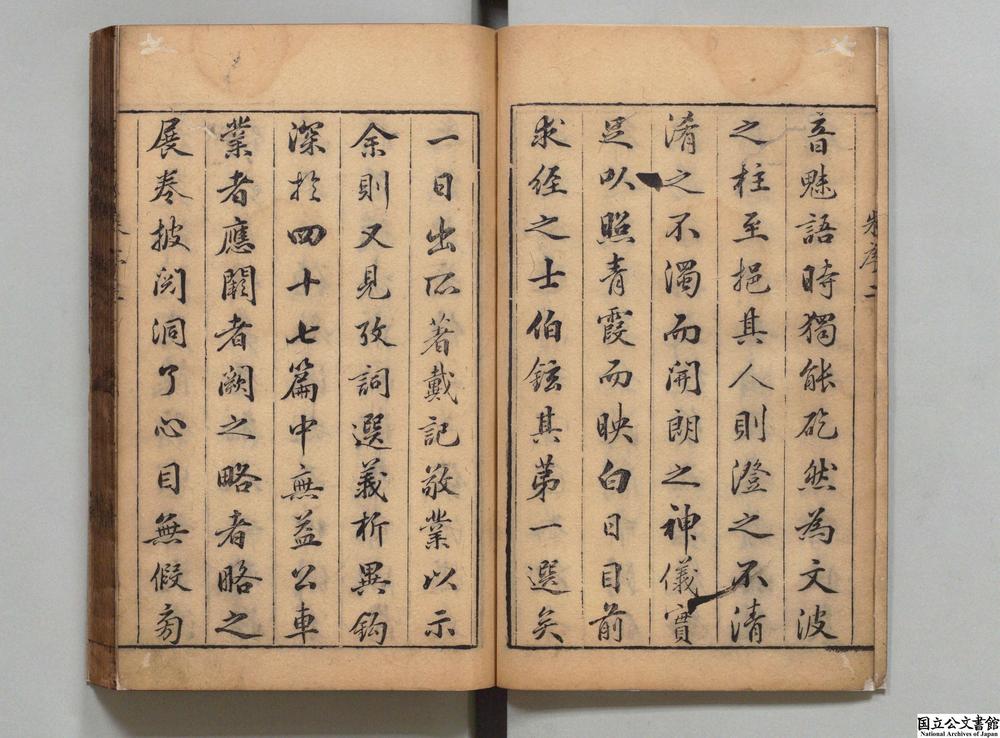 音魅語時獨能矻然為文波
之柱至挹其人則澄之不清
淆之不濁而開朗之神儀實
足以照青霞而映白日目前
求經之士伯鉉其第一選矣
一日出所著戴記敬業以示
余則又見攷詞選義析異鈎
深於四十七篇中無益公車
業者應闕者闕之略者略之
展卷披閱洞了心目無假旁
朱序二
国立公文書館
National Archives of Japan